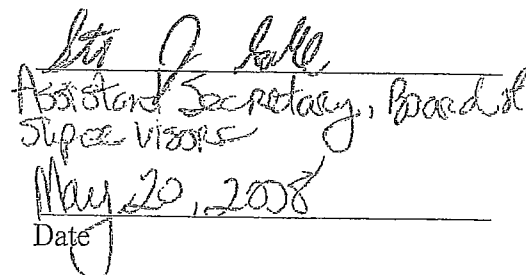 Assistant Secretary, Board of
Supervisors
May 20, 2008
Date